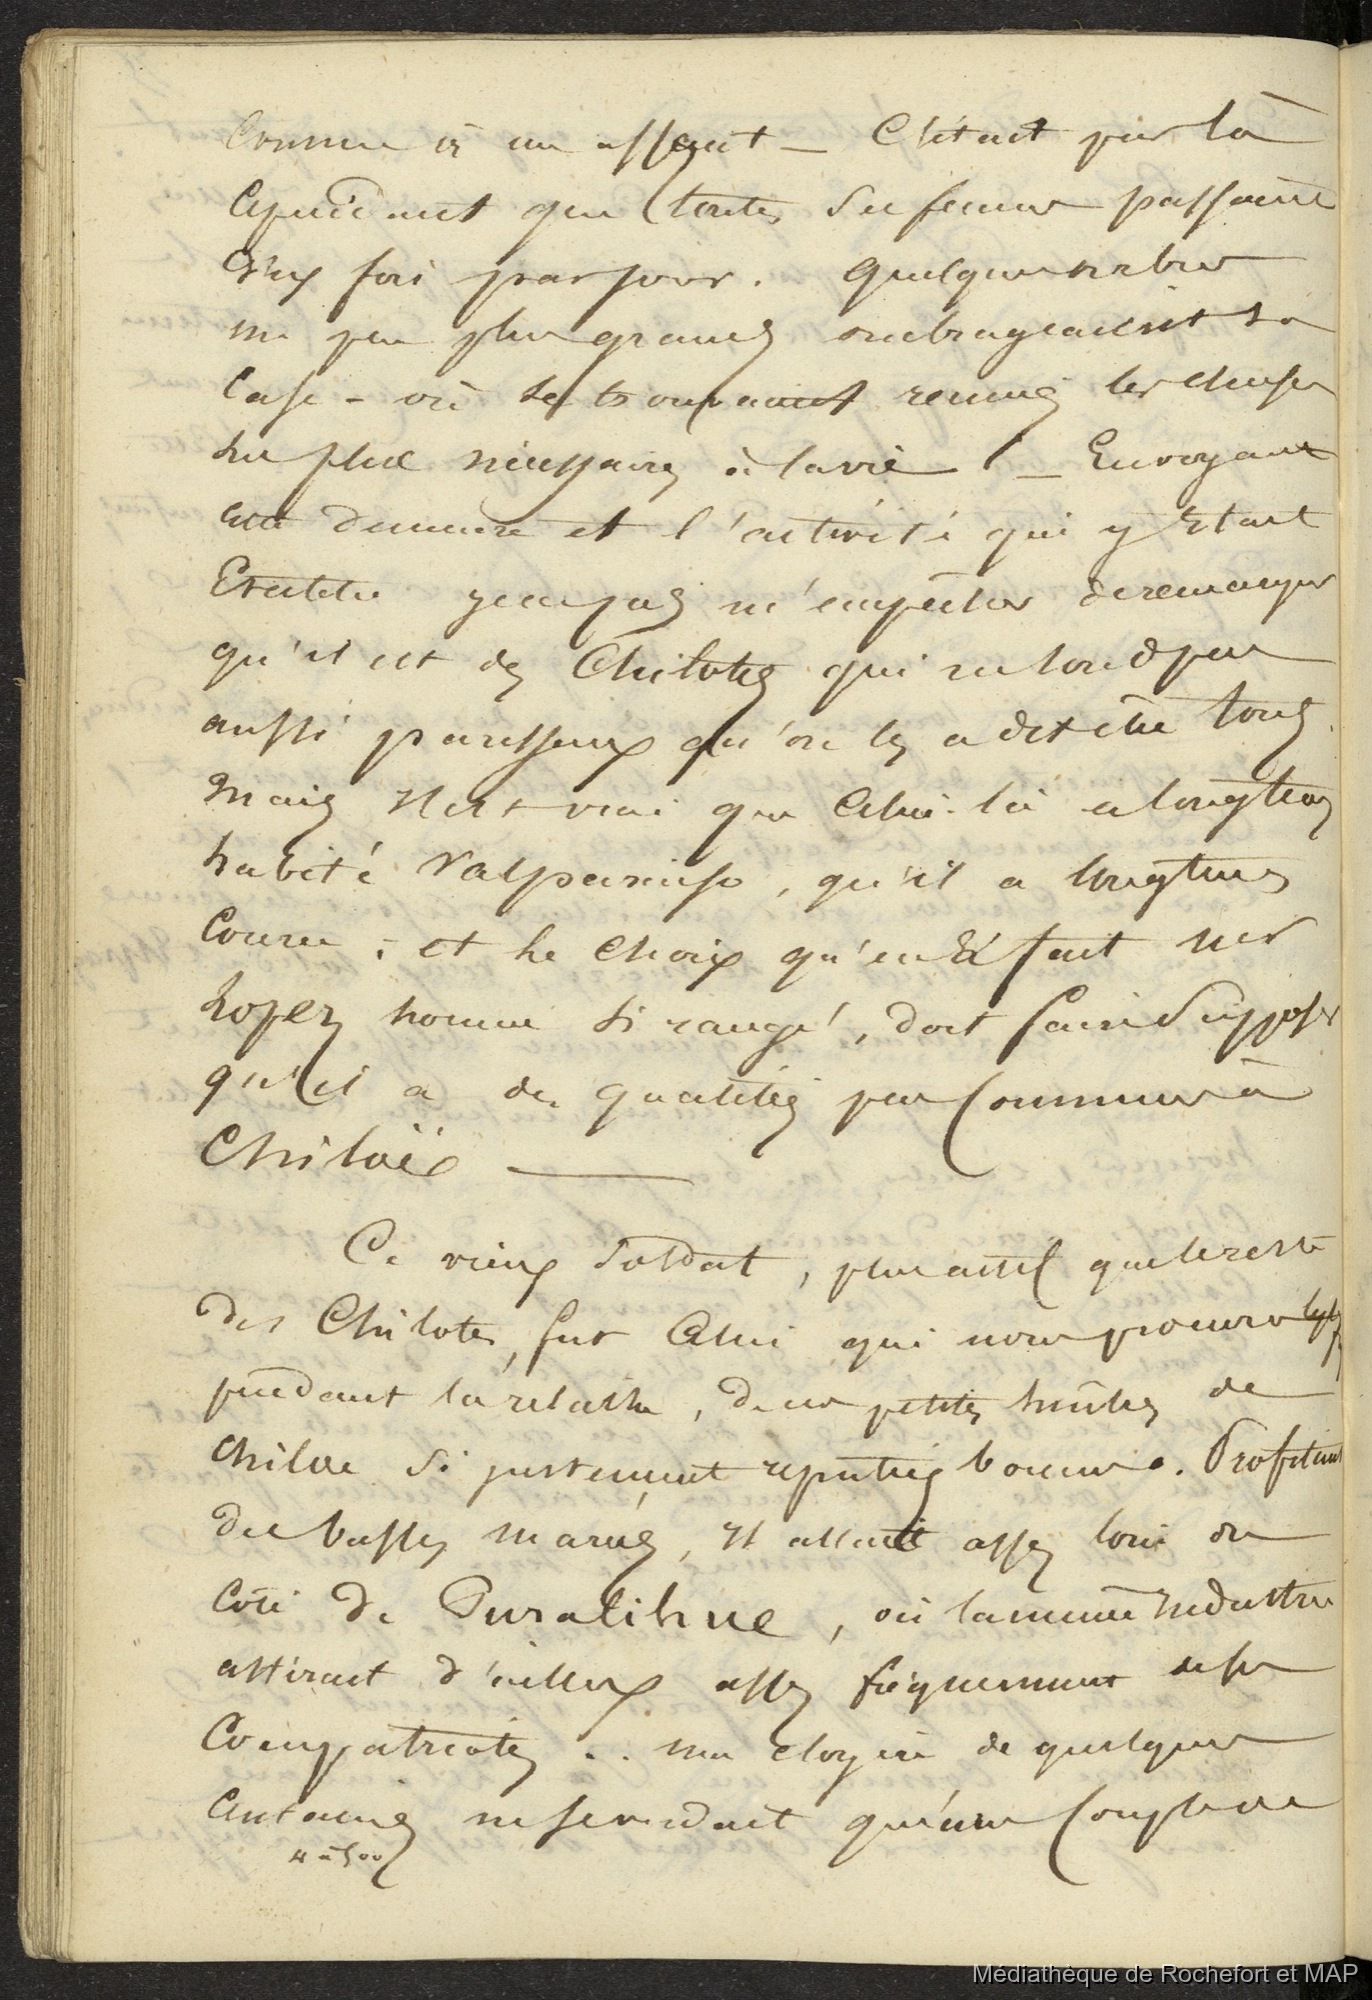 Comme à un assaut — C'était par là
Cependant que toutes ses femmes passaient
cinq fois par jour. Quelques arbres
un peu plus grands ombrageaient sa
Case - où se trouvaient reunis les choses
les plus nécessaires à la vie ! — En voyant
cette demeure et l'activité qui y était
Etablie je ne pus m'empêcher de remarquer
qu'il est des Chilotes qui ne sont pas
aussi paresseux qu'on les a dit être tous.
Mais il est vrai que celui-là a longtems
habité Valparaiso, qu'il a longtems
Couru ; et le choix qu'en a fait Mr
Lopez homme si rangé, doit faire supposer
qu'il a des qualités peu Communes à
Chiloë —
Ce vieux Soldat, plus actif que le reste
des Chilotes, fut celui qui nous procura
pendant la relache, de ces petites huîtres de
Chiloe si justement reputées bonnes. Profitant
des basses marées, il allait assez loin du
Côté de Puralihue, où la même industrie
attirait d'ailleurs assez fréquemment de ses
Compatriotes .. Un cloyère de quelques
Centaines ne se vendait qu'une Couple de
4 à 500
Médiathèque de Rochefort et MAP